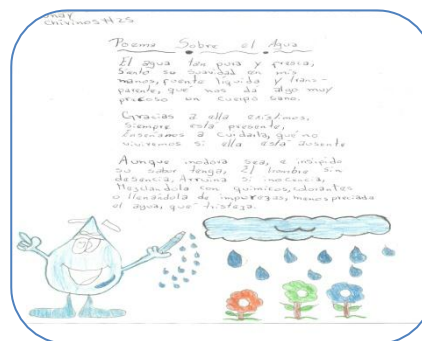 Chirinos #25
Poema Sobre el Agua
El agua tan pura y fresca,
Siento su suavidad en mis
manos, fuente liquida y trans-
parente, que nos da algo muy
precioso un cuerpo sano.
Gracias a ella existimos,
Siempre esta presente,
Enseñamos a cuidarla, que no
viviremos si ella está ausente
Aunque inodora sea, e insipido
su sabor tenga, El hombre sin
desencia, Arruina si inocencia,
Mezclandola con quimicos, colorantes
o llenándola de impurezas, menospreciada
el agua, que tristeza.